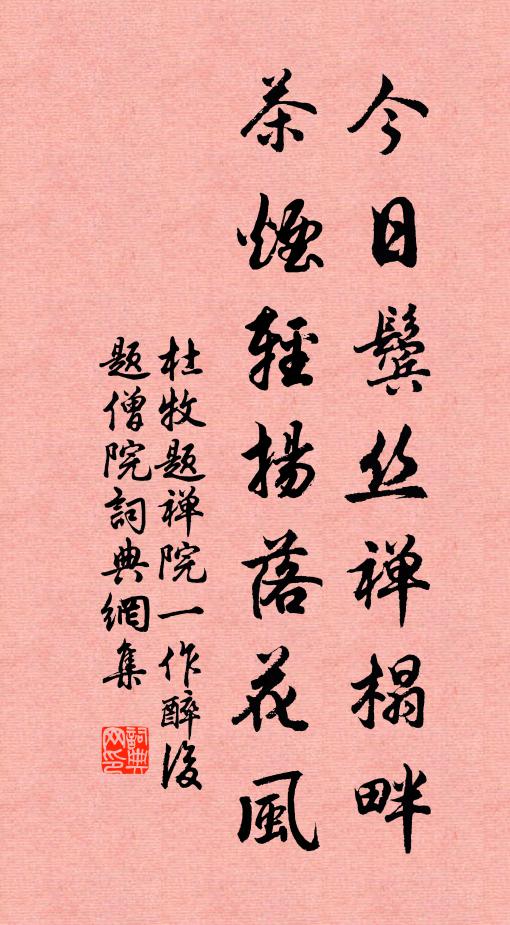 今日鬓丝禅榻畔
茶煙輕揚落花風
杜牧题禅院一作醉後
题僧院詞典網集
詞典网印